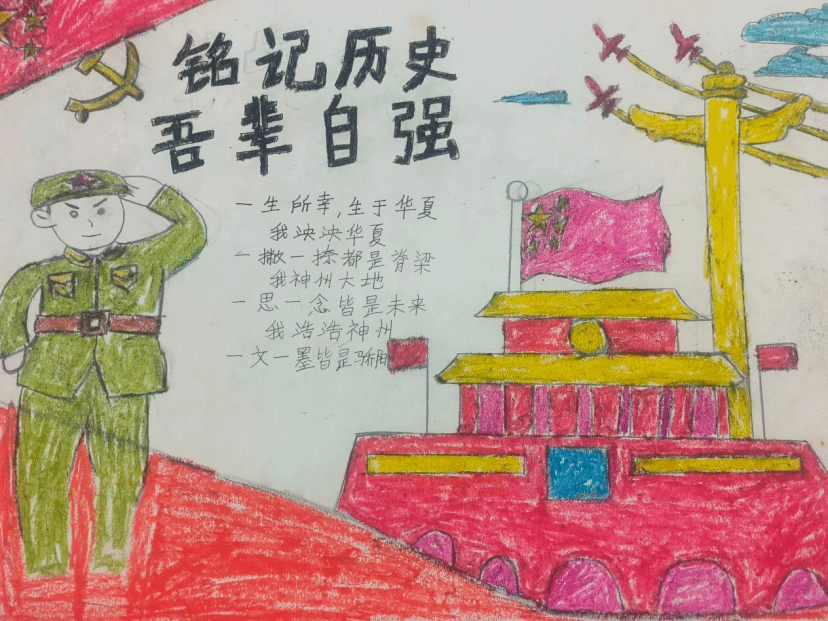 铭记历史
吾辈自强
一生所幸,生于华夏
我泱泱华夏
一撇一捺都是脊梁
我神州大地
一思一念皆是未来
我浩浩神州
一文一墨皆是骄阳